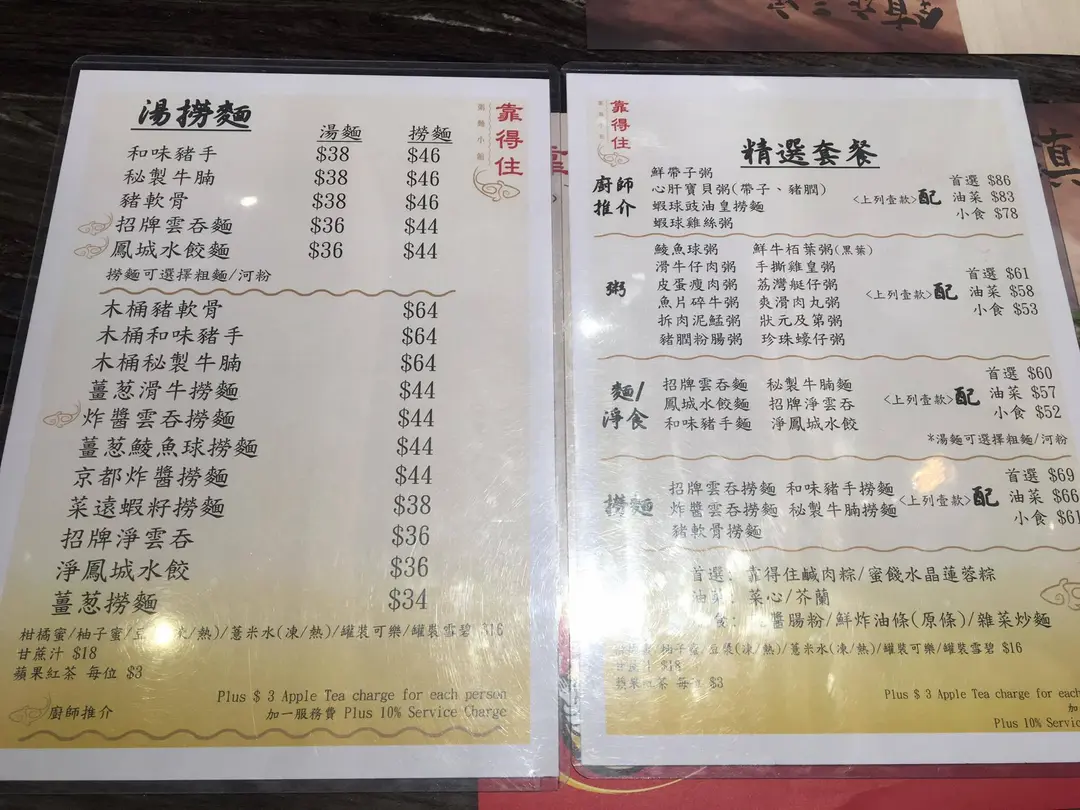 湯撈麵
靠得住
湯麵 撈麵
和味豬手 $38 $46
秘製牛腩 $38 $46
豬軟骨 $38 $46
招牌雲吞麵 $36 $44
鳳城水餃麵 $36 $44
撈麵可選擇粗麵/河粉
木桶豬軟骨 $64
木桶和味豬手 $64
木桶秘製牛腩 $64
薑葱滑牛撈麵 $44
炸醬雲吞撈麵 $44
薑葱鯪魚球撈麵 $44
京都炸醬撈麵 $44
菜遠蝦籽撈麵 $38
招牌淨雲吞 $36
淨鳳城水餃 $36
薑葱撈麵 $34
柑橘蜜/柚子蜜/豆 (凍/熱)/薏米水(凍/熱)/罐裝可樂/罐裝雪碧 $16
甘蔗汁 $18
蘋果紅茶 每位 $3
Plus $ 3 Apple Tea charge for each person
加一服務費 Plus 10% Service Charge
廚師推介
靠得住
精選套餐
廚師推介
鮮帶子粥
心肝寶貝粥(帶子、豬膶)
蝦球豉油皇撈麵
蝦球雞絲粥
<上列壹款>配
首選 $86
油菜 $83
小食 $78
粥
鯪魚球粥 鮮牛栢葉粥(黑葉)
滑牛仔肉粥 手撕雞皇粥
皮蛋瘦肉粥 荔灣艇仔粥
魚片碎牛粥 爽滑肉丸粥
拆肉泥鯭粥 狀元及第粥
豬膶粉腸粥 珍珠蠔仔粥
<上列壹款>配
首選 $61
油菜 $58
小食 $53
麵/淨食
招牌雲吞麵 秘製牛腩麵
鳳城水餃麵 招牌淨雲吞
和味豬手麵 淨鳳城水餃
<上列壹款>配
首選 $60
油菜 $57
小食 $52
*湯麵可選擇粗麵/河粉
撈麵
招牌雲吞撈麵 和味豬手撈麵
炸醬雲吞撈麵 秘製牛腩撈麵
豬軟骨撈麵
<上列壹款>配
首選 $69
油菜 $66
小食 $61
首選: 靠得住鹹肉粽/蜜餞水晶蓮蓉粽
油菜: 菜心/芥蘭
醬腸粉/鮮炸油條(原條)/雜菜炒麵
柚子蜜/豆漿(凍/熱)/薏米水(凍/熱)/罐裝可樂/罐裝雪碧 $16
甘蔗汁 $18
蘋果紅茶 每位 $3
Plus $ 3 Apple Tea charge for each
加
Plus 10% Servic